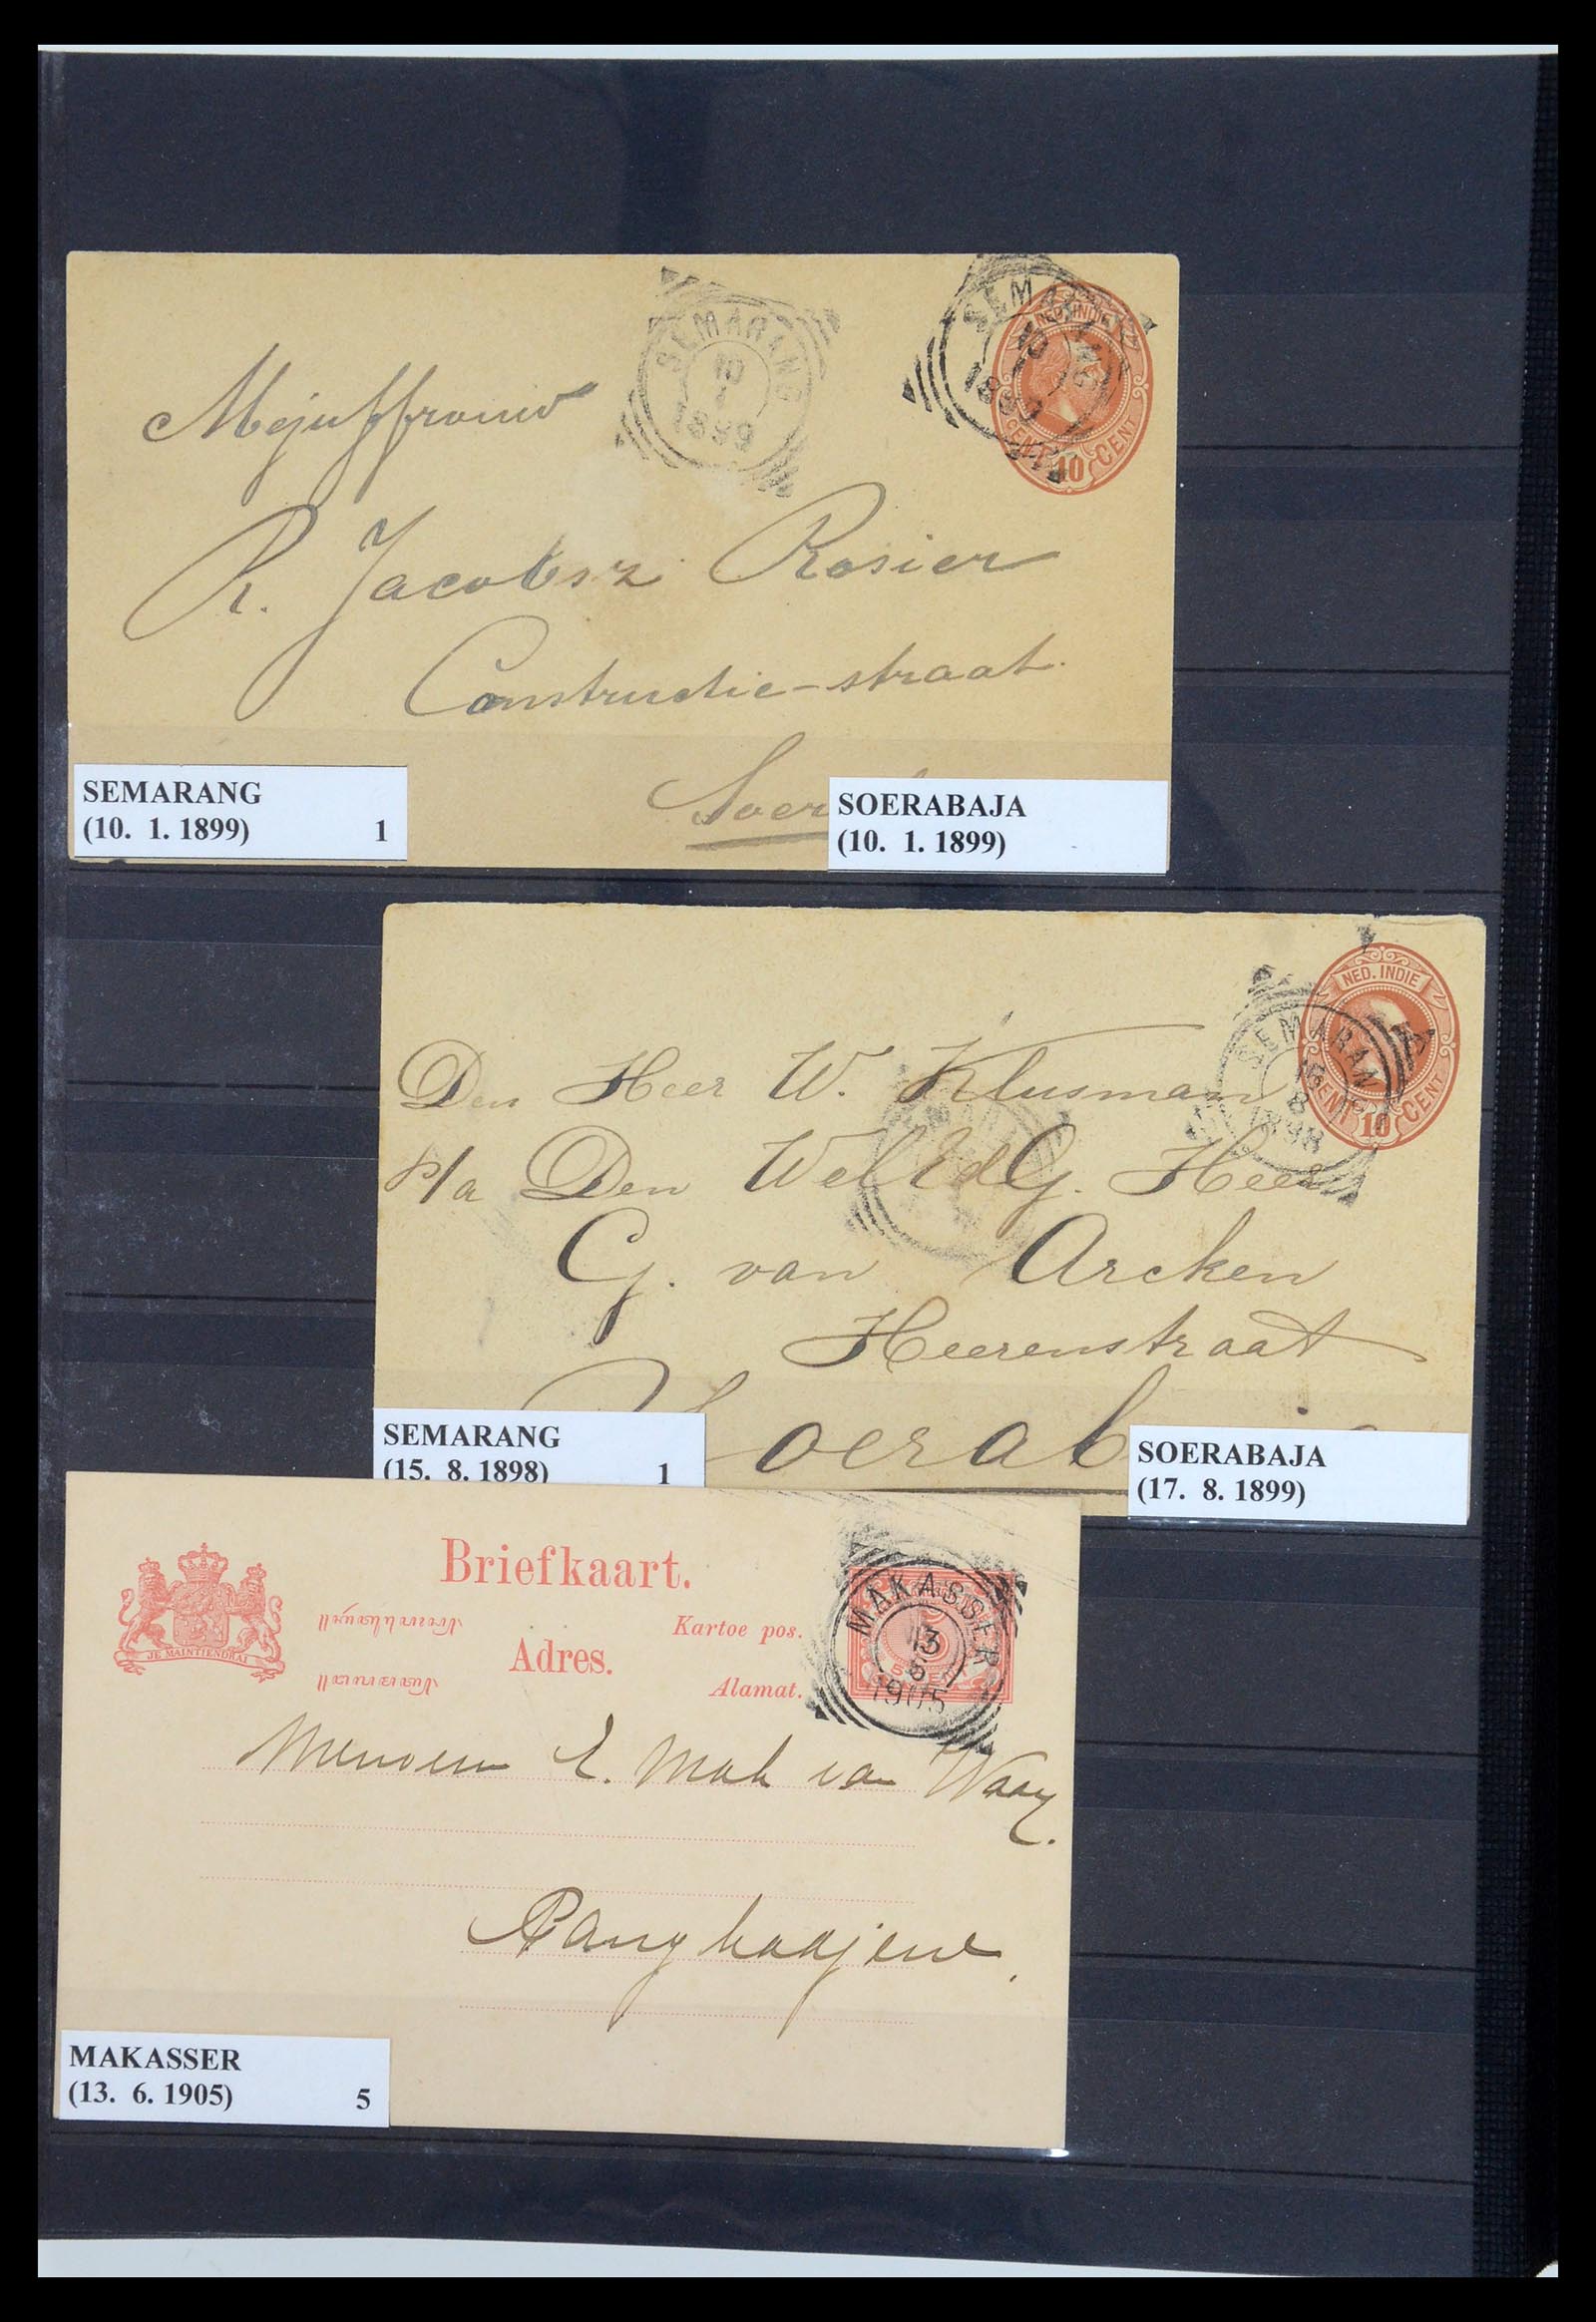 SEMARANG
10
1
1899
SEMA
NED. INDIE
CENT 10 CENT
Mejuffrouw
R. Jacobsz Rosier
Constructie-straat.
Soer
SEMARANG
(10. 1. 1899) 1
SOERABAJA
(10. 1. 1899)
NED. INDIE
CENT 10 CENT
SEMARAN
8
1898
Den Heer W. Klusman
p/a Den Wel Ed G. Heer
G. van Arcken
Heerenstraat
Soerab
SEMARANG
(15. 8. 1898) 1
SOERABAJA
(17. 8. 1899)
Briefkaart.
Adres.
Kartoe pos.
Alamat.
JE MAINTIENDRAI
MAKASSER
13
6
1905
Mevrouw E. Mak van Waay.
Pangkadjene.
MAKASSER
(13. 6. 1905) 5